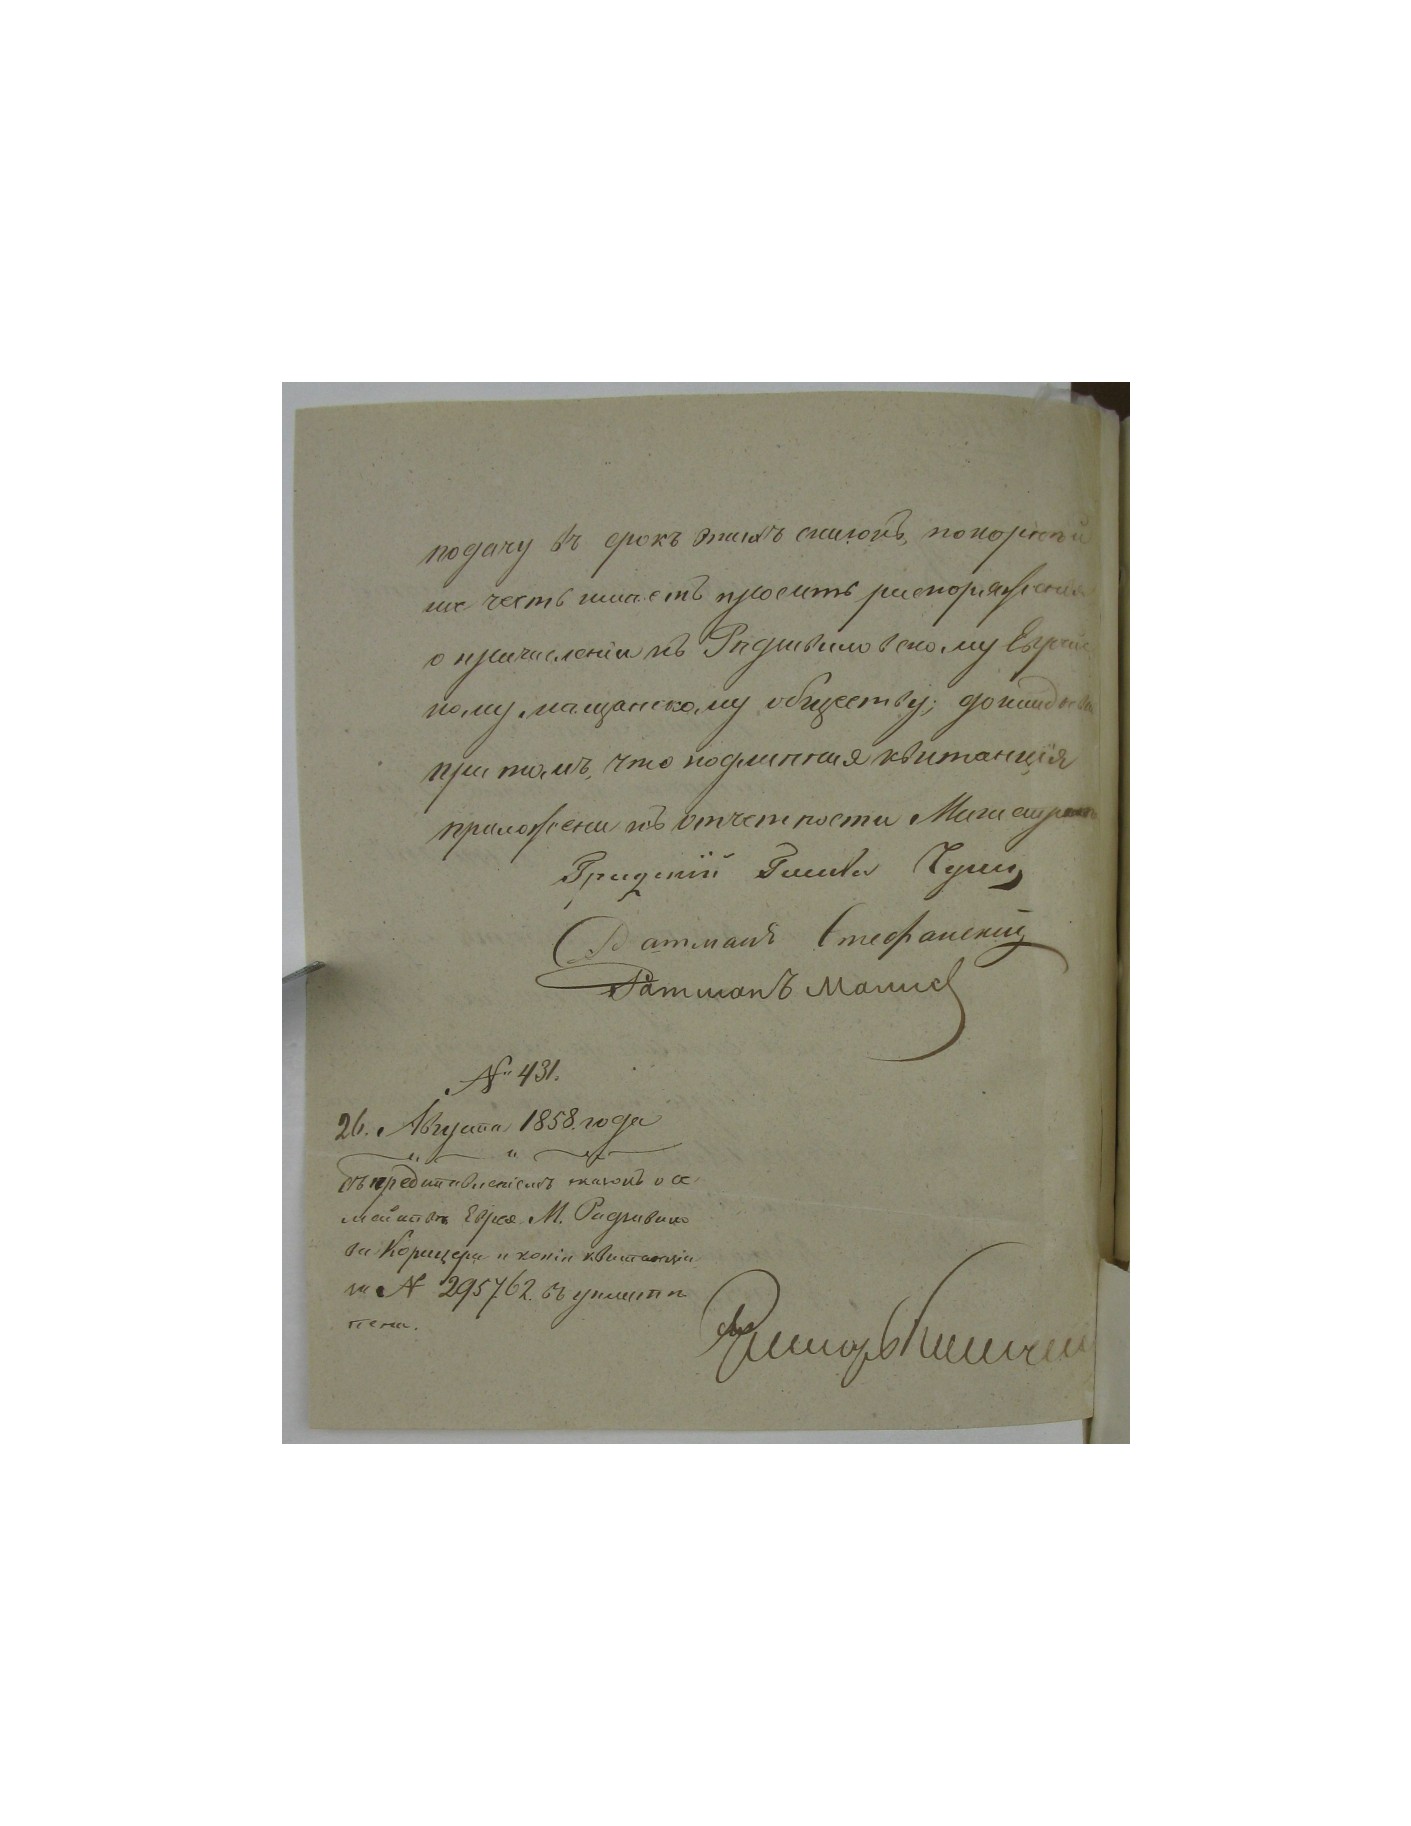 подачу въ срокъ этихъ сказокъ, покорнѣй
ше честь имѣетъ просить распоряженія
о причисленіи къ Радзивиловскому Еврейс
кому мѣщанскому обществу; докладывая
при томъ, что подлинная квитанція
приложена къ отчетности Магистрата
Градскій Глава
Ратманъ Стефанскій
Ратманъ
№ 431.
26. Августа 1858. года
Съ представленіемъ сказокъ о се
мействѣ Еврея М. Радзивило
ва Корицера и копіи квитанціи
за № 295762. въ уплатѣ
пени.